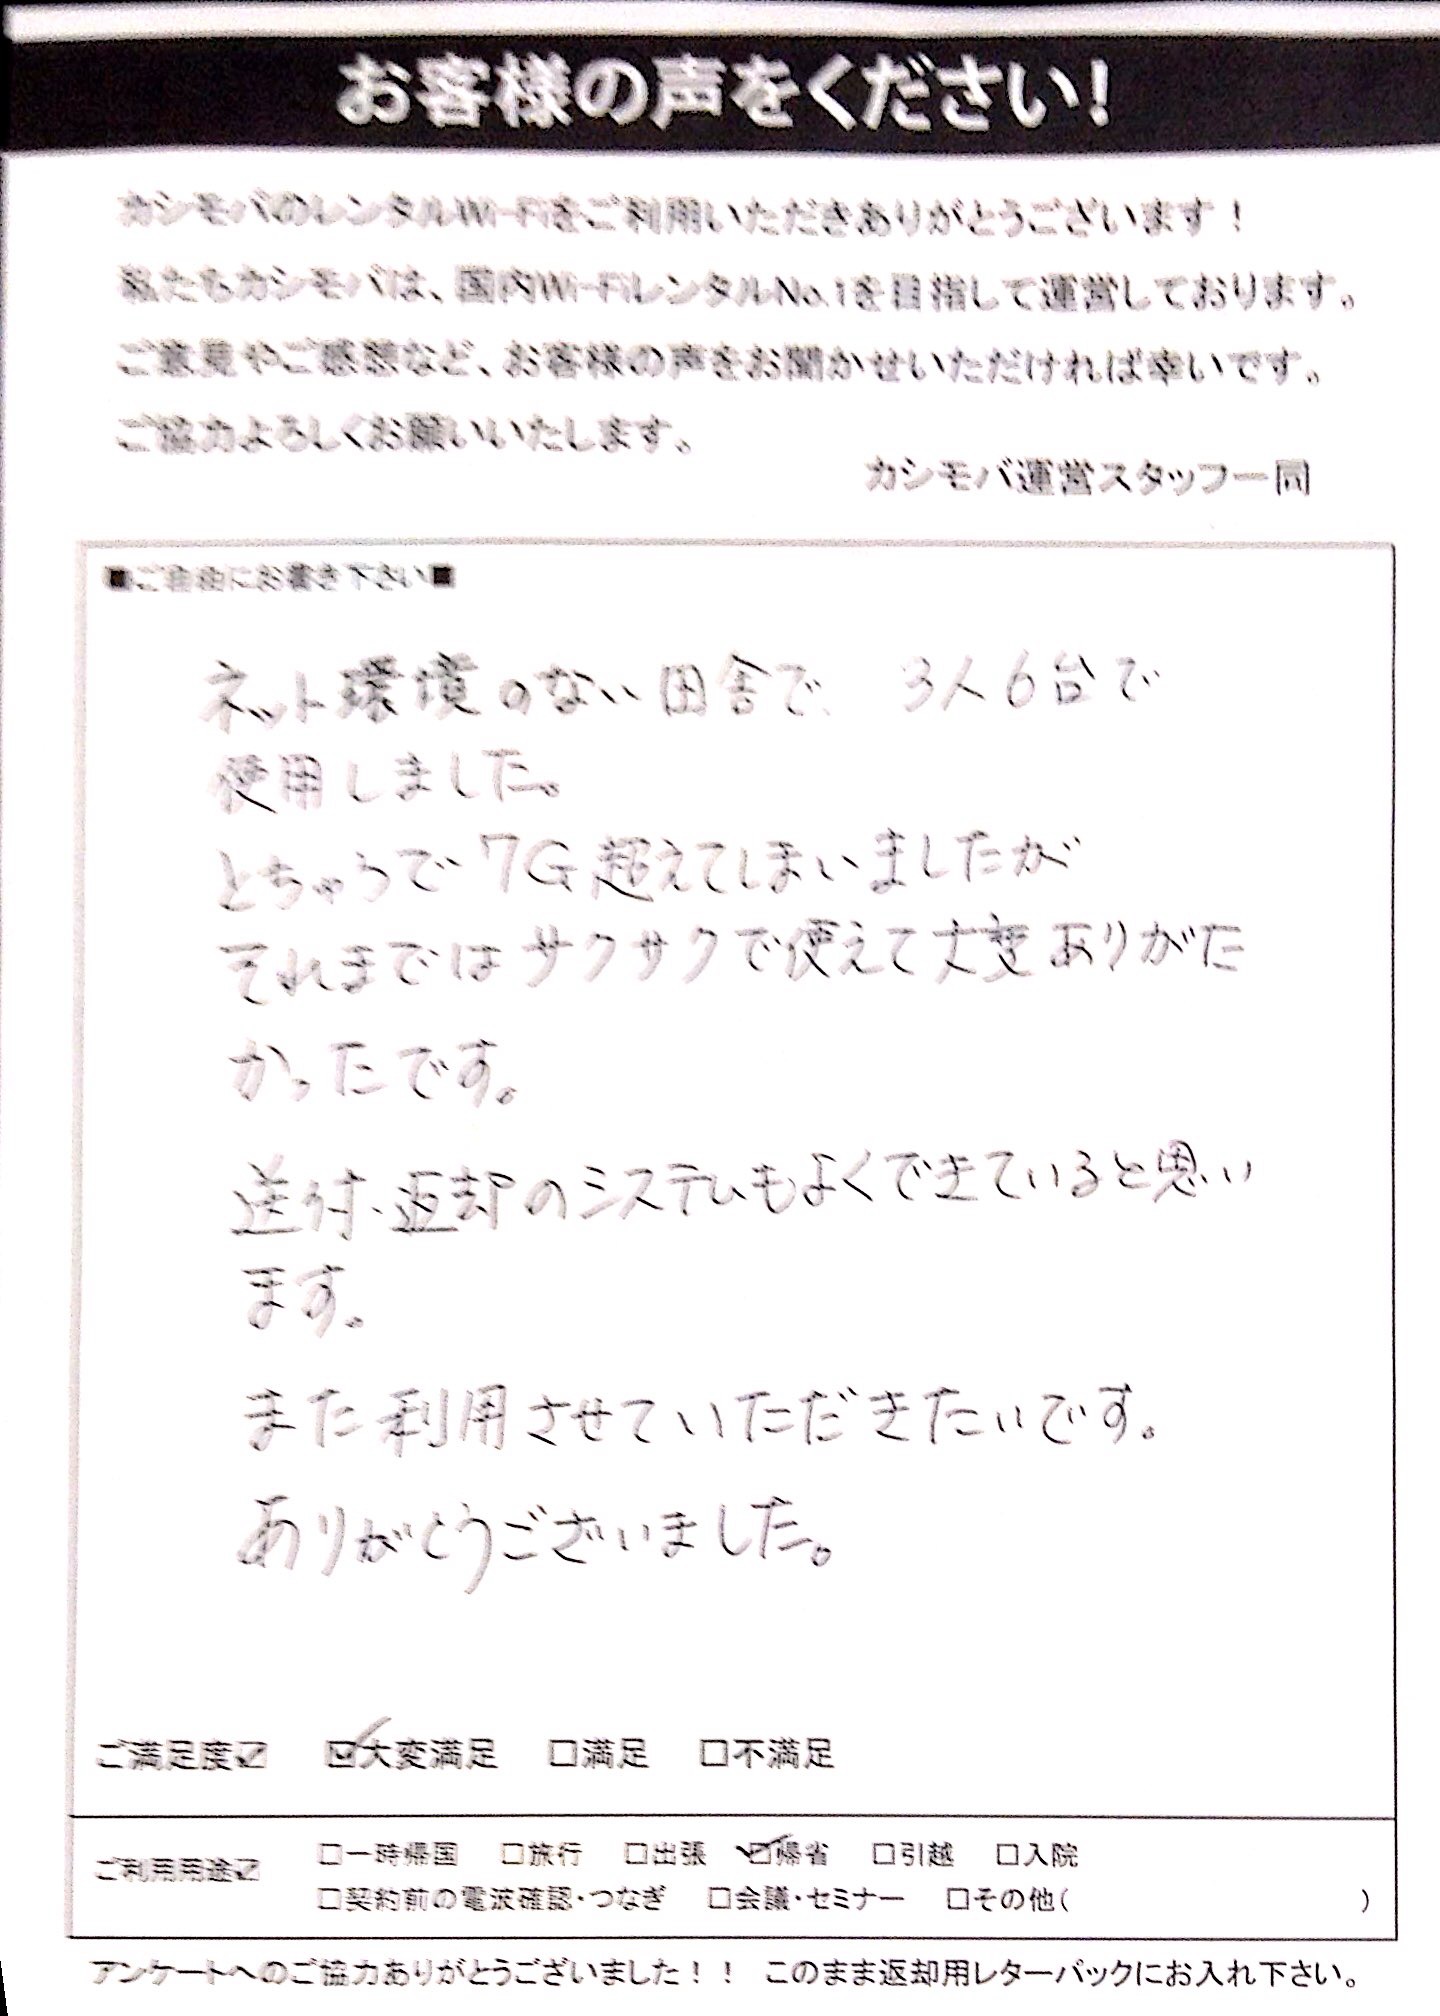 お客様の声をください！
カシモバのレンタルWi-Fiをご利用いただきありがとうございます！
私たちカシモバは、国内Wi-FiレンタルNo.1を目指して運営しております。
ご意見やご感想など、お客様の声をお聞かせいただければ幸いです。
ご協力よろしくお願いいたします。
カシモバ運営スタッフ一同
■ご自由にお書き下さい■
ネット環境のない田舎で、3人6台で
使用しました。
とちゅうで7G超えてしまいましたが
それまではサクサクで使えて大変ありがた
かったです。
送付・返却のシステムもよくできていると思い
ます。
また利用させていただきたいです。
ありがとうございました。
ご満足度☑ ☑大変満足 □満足 □不満足
ご利用用途☑ □一時帰国 □旅行 □出張 ☑帰省 □引越 □入院
□契約前の電波確認・つなぎ □会議・セミナー □その他( )
アンケートへのご協力ありがとうございました！！ このまま返却用レターパックにお入れ下さい。